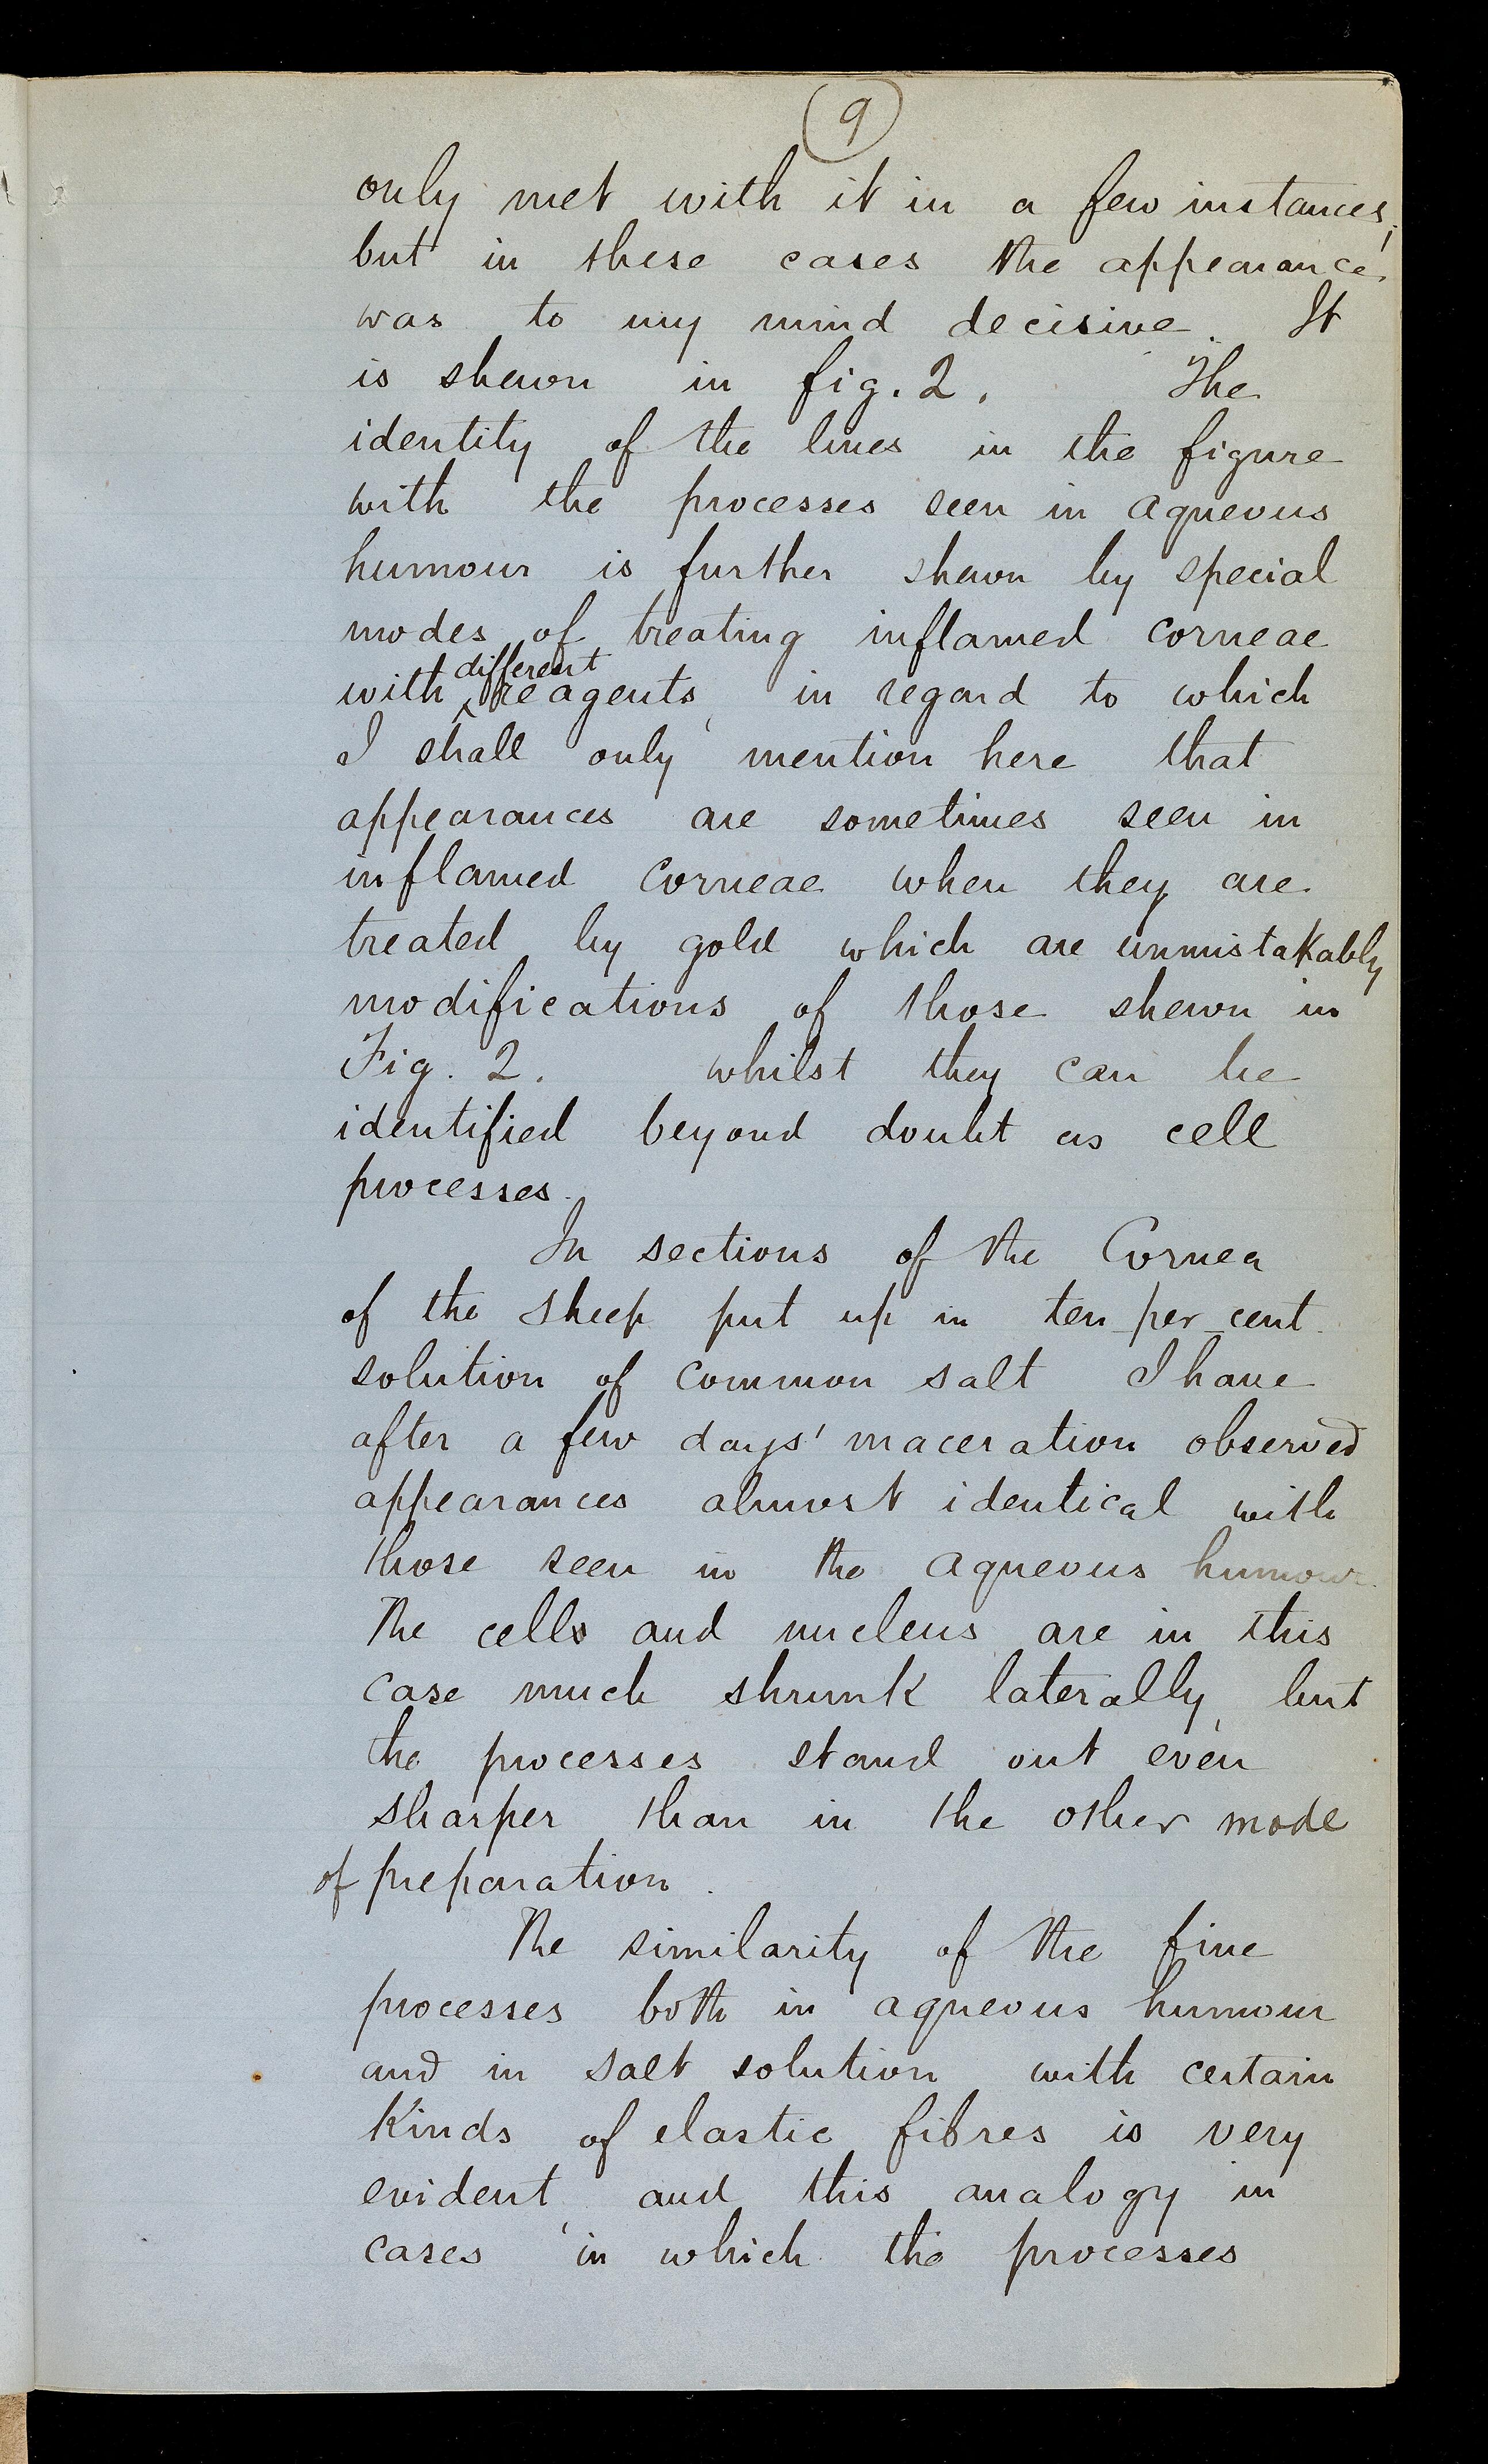 9
only met with it in a few instances;
but in these cases the appearance
was to my mind decisive. It
is shewn in fig. 2. The
identity of the lines in the figure
with the processes seen in aqueous
humour is further shewn by special
modes of treating inflamed corneae
different
with ‸ reagents, in regard to which
I shall only mention here that
appearances are sometimes seen in
inflamed Corneae when they are
treated by gold which are unmistakably
modifications of those shewn in
Fig. 2. whilst they can be
identified beyond doubt as cell
processes.
In sections of the Cornea
of the sheep put up in ten per cent.
solution of common salt I have
after a few days' maceration observed
appearances almost identical with
those seen in the aqueous humour.
The cells and nucleus are in this
case much shrunk laterally, but
the processes stand out even
sharper than in the other mode
of preparation.
The similarity of the fine
processes both in aqueous humour
and in salt solution with certain
Kinds of elastic fibres is very
evident, and this analogy in
cases in which the processes